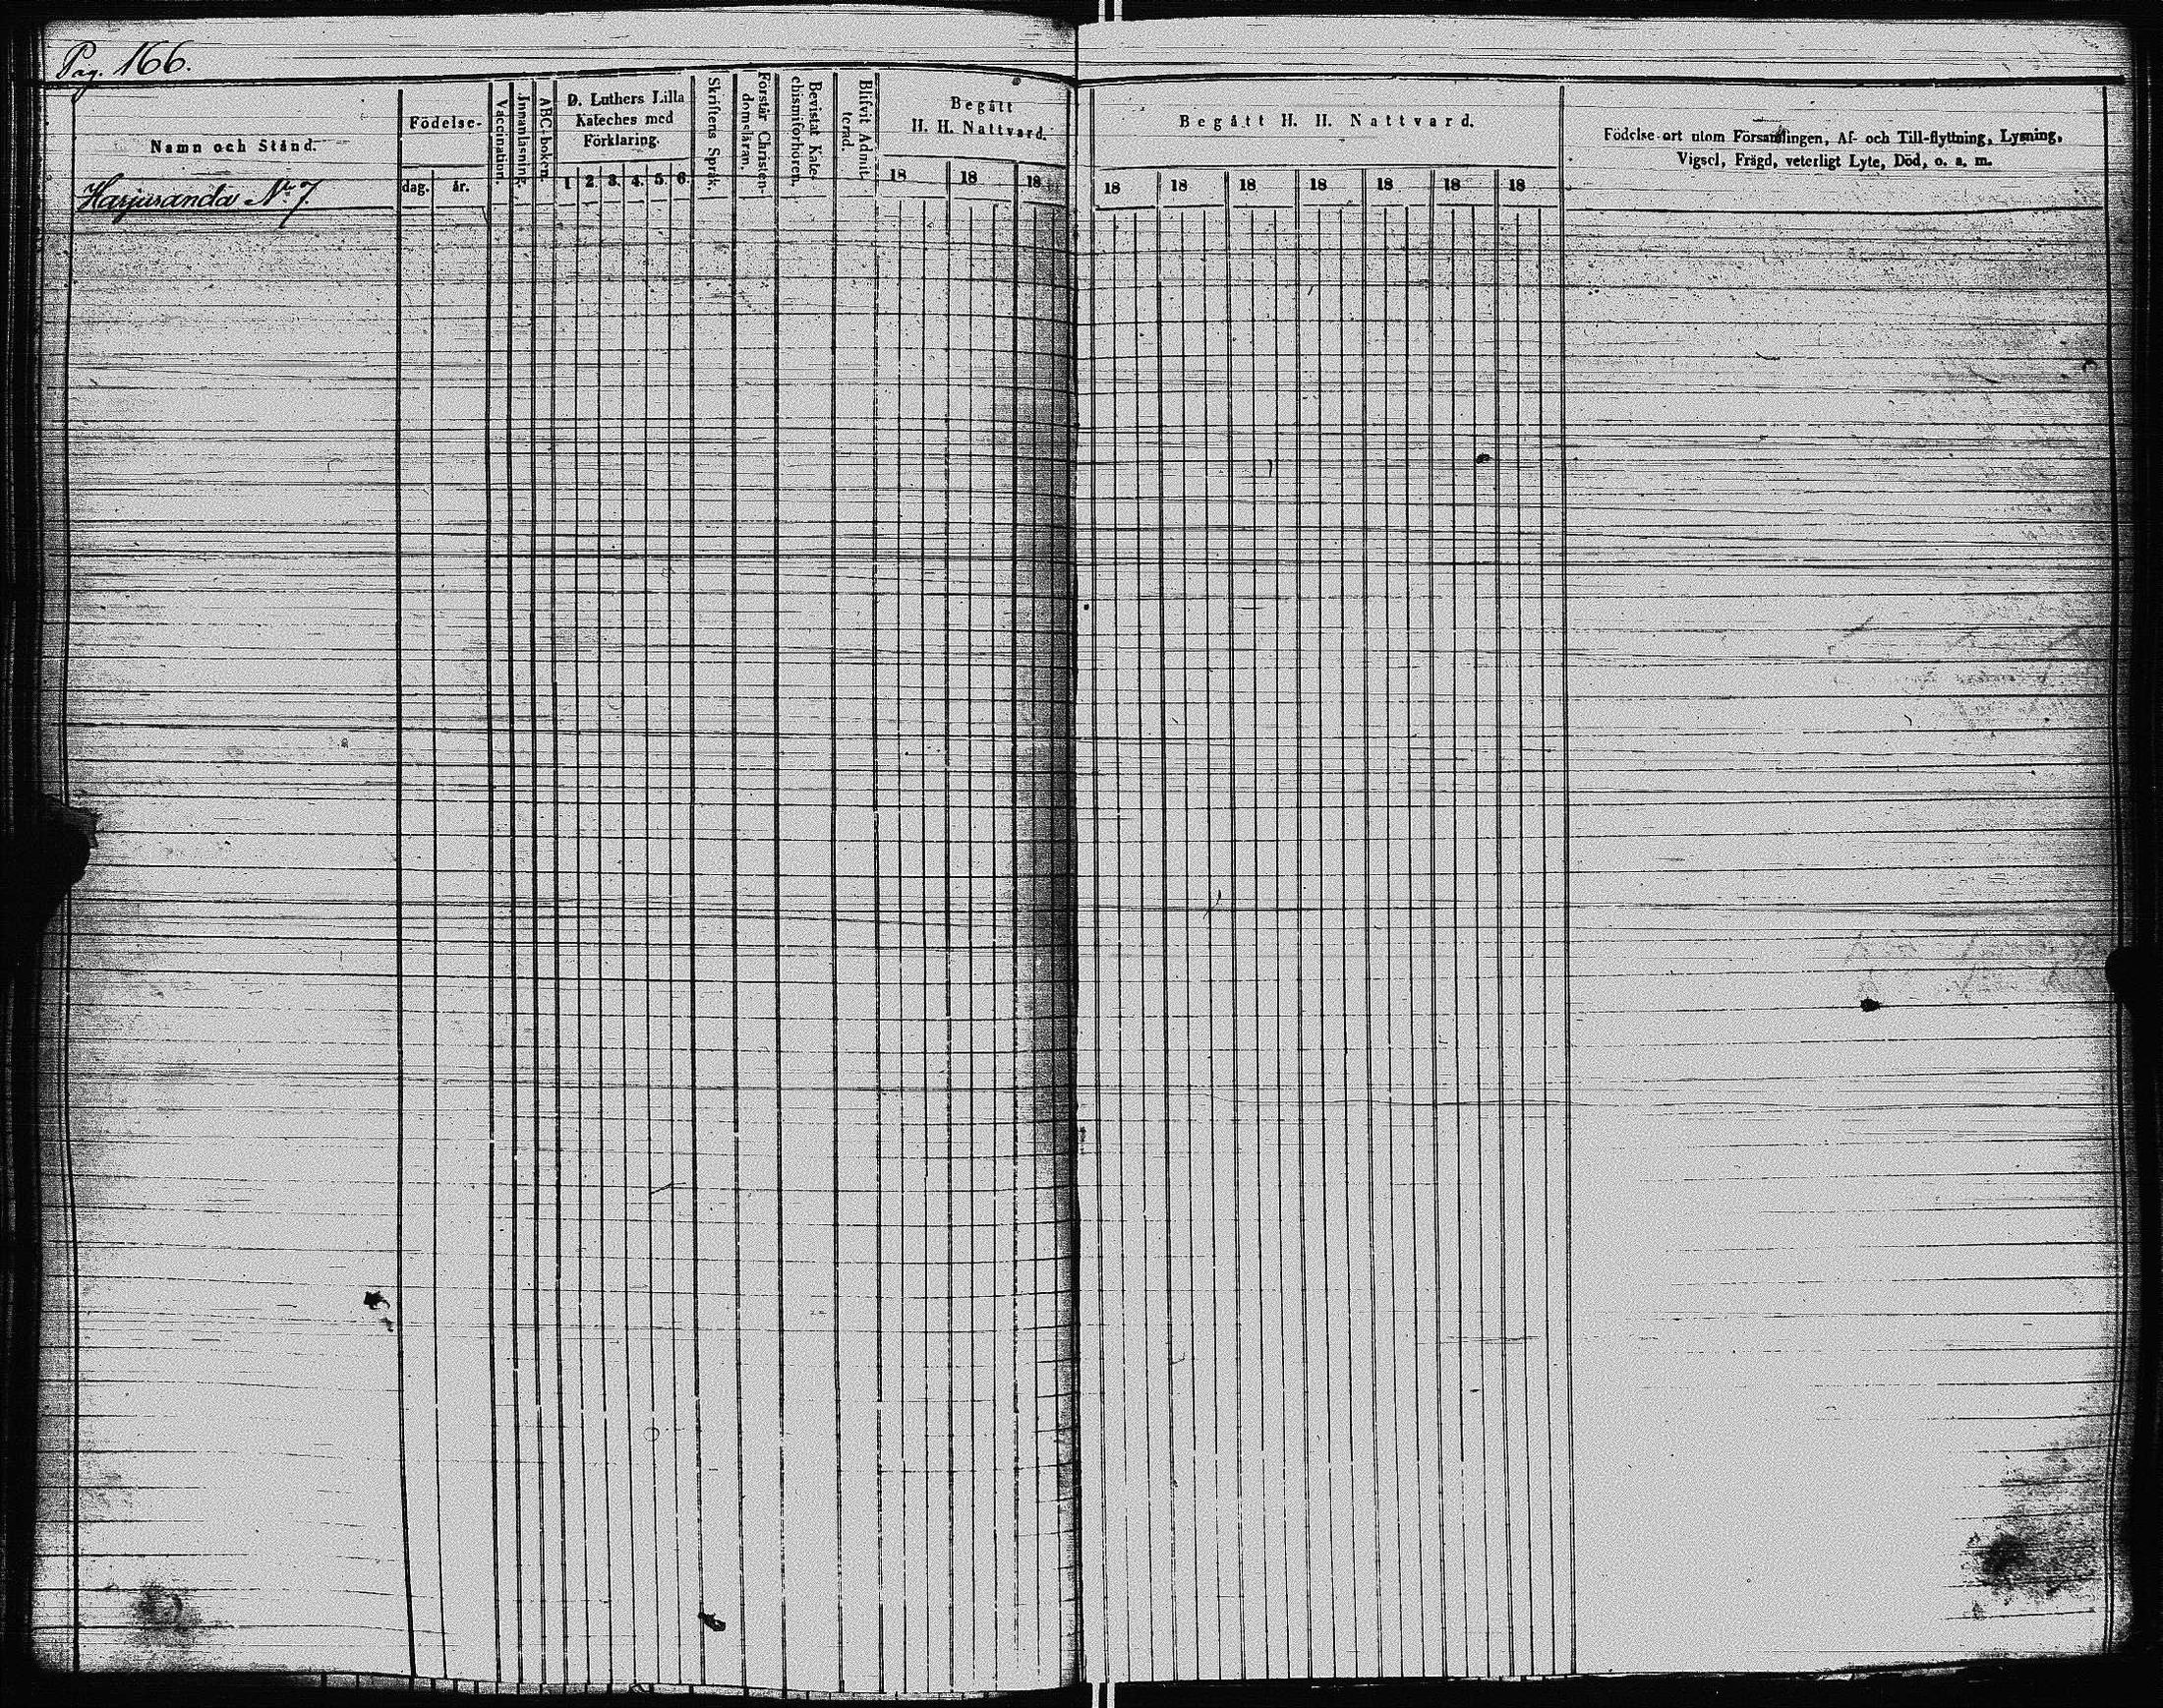 Pag. 166.
Namn och Stånd.
Harjuranda No 7.
Födelse-
dag. år.
Vaccination.
Innanläsning.
ABC-boken.
D. Luthers Lilla
Kateches med
Förklaring.
1 2. 3. 4. 5. 6.
Skriftens Språk.
Förstår Christen-
domsläran.
Bevistat Kate-
chismiförhören.
Blifvit Admit-
terad.
Begått
H. H. Nattvard.
18 18 18
Begått H. H. Nattvard.
18 18 18 18 18 18 18
Födelse-ort utom Församlingen, Af- och Till-flyttning, Lysning,
Vigsel, Frägd, veterligt Lyte, Död, o. s. m.